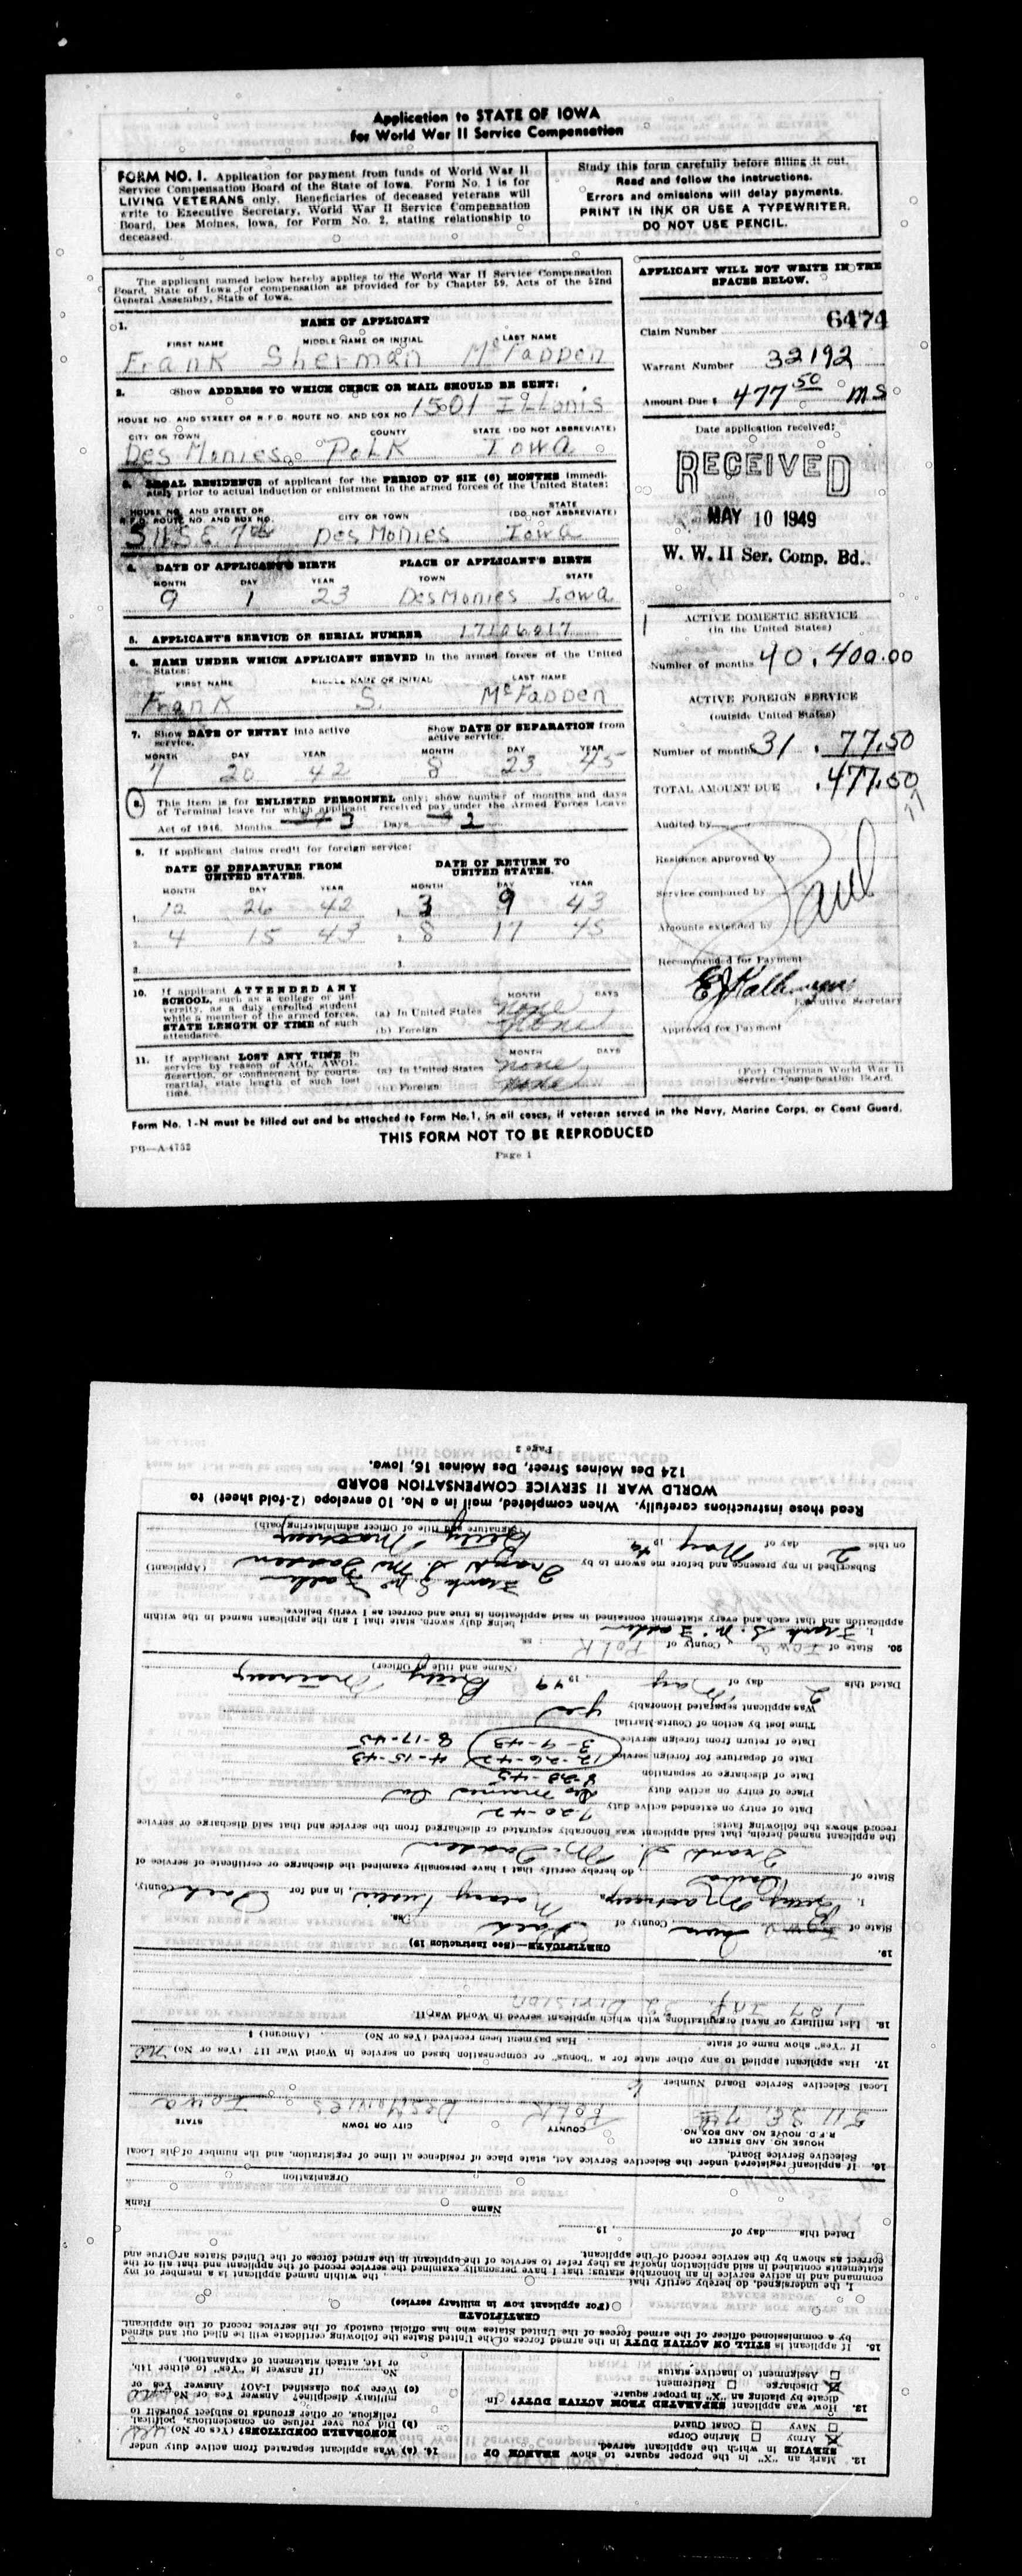 Application to STATE OF IOWA
for World War II Service Compensation
FORM NO. 1. Application for payment from funds of World War II
Service Compensation Board of the State of Iowa. Form No. 1 is for
LIVING VETERANS only. Beneficiaries of deceased veterans will
write to Executive Secretary, World War II Service Compensation
Board, Des Moines, Iowa, for Form No. 2, stating relationship to
deceased.
Study this form carefully before filling it out.
Read and follow the instructions.
Errors and omissions will delay payments.
PRINT IN INK OR USE A TYPEWRITER.
DO NOT USE PENCIL.
The applicant named below hereby applies to the World War II Service Compensation
Board, State of Iowa for compensation as provided for by Chapter 59, Acts of the 52nd
General Assembly, State of Iowa.
1. NAME OF APPLICANT
FIRST NAME MIDDLE NAME OR INITIAL LAST NAME
Frank Sherman McFadden
2. Show ADDRESS TO WHICH CHECK OR MAIL SHOULD BE SENT:
HOUSE NO. AND STREET OR R.F.D. ROUTE NO. AND BOX NO. 1501 ILLonis
CITY OR TOWN COUNTY STATE (DO NOT ABBREVIATE)
Des Monies Polk Iowa
3. LEGAL RESIDENCE of applicant for the PERIOD OF SIX (6) MONTHS immedi-
ately prior to actual induction or enlistment in the armed forces of the United States:
HOUSE NO. AND STREET OR CITY OR TOWN STATE
R.F.D. ROUTE NO. AND BOX NO. (DO NOT ABBREVIATE)
511 S.E. 7th Des Monies Iowa
4. DATE OF APPLICANT'S BIRTH PLACE OF APPLICANT'S BIRTH
MONTH DAY YEAR TOWN STATE
9 1 23 Des Monies Iowa
5. APPLICANT'S SERVICE OR SERIAL NUMBER 17106017
6. NAME UNDER WHICH APPLICANT SERVED in the armed forces of the United
States:
FIRST NAME MIDDLE NAME OR INITIAL LAST NAME
Frank S. McFadden
7. Show DATE OF ENTRY into active service. Show DATE OF SEPARATION from active service.
MONTH DAY YEAR MONTH DAY YEAR
7 20 42 8 23 45
8. This item is for ENLISTED PERSONNEL only; show number of months and days
of Terminal leave for which applicant received pay under the Armed Forces Leave
Act of 1946. Months 3 Days 2
9. If applicant claims credit for foreign service:
DATE OF DEPARTURE FROM UNITED STATES. DATE OF RETURN TO UNITED STATES.
MONTH DAY YEAR MONTH DAY YEAR
1. 12 26 42 1. 3 9 43
2. 4 15 43 2. 8 17 45
3.
10. If applicant ATTENDED ANY
SCHOOL, such as a college or uni-
versity, as a duly enrolled student
while a member of the armed forces,
STATE LENGTH OF TIME of such
attendance.
MONTH DAYS
(a) In United States none
(b) Foreign none
11. If applicant LOST ANY TIME in
service by reason of AOL, AWOL,
desertion, or confinement by courts-
martial, state length of such lost
time.
MONTH DAYS
(a) In United States none
(b) Foreign none
APPLICANT WILL NOT WRITE IN THE
SPACES BELOW.
Claim Number 6474
Warrant Number 32192
Amount Due $ 477 50 MS
Date application received:
RECEIVED
MAY 10 1949
W. W. II Ser. Comp. Bd.
ACTIVE DOMESTIC SERVICE
(in the United States)
Number of months 40. 400.00
ACTIVE FOREIGN SERVICE
(outside United States)
Number of months 31 . 77.50
TOTAL AMOUNT DUE .477.50
Audited by
Residence approved by
Service computed by Paul
Amounts extended by
Recommended for Payment
Executive Secretary
Approved for Payment
(For) Chairman World War II
Service Compensation Board.
Form No. 1-N must be filled out and be attached to Form No. 1, in all cases, if veteran served in the Navy, Marine Corps, or Coast Guard.
THIS FORM NOT TO BE REPRODUCED
PB—A-4752
Page 1
12. Mark an "X" in the proper square to show BRANCH OF
SERVICE in which the applicant served.
X Army Marine Corps
Navy Coast Guard
13. How was applicant SEPARATED FROM ACTIVE DUTY? (In
dicate by placing an "X" in proper square.
X Discharge Retirement
Assignment to inactive status
14. (a) Was applicant separated from active duty under
HONORABLE CONDITIONS? (Yes or No) yes
(b) Did you ever refuse on conscientious, political,
religious, or other grounds to subject yourself to
military discipline? Answer Yes or No
(c) Were you classified 1-AO? Answer Yes or
No (If answer is "Yes" to either 14b,
or 14c, attach statement of explanation.)
15. If applicant is STILL ON ACTIVE DUTY in the armed forces of the United States the following certificate will be filled out and signed
by a commissioned officer of the armed forces of the United States who has official custody of the service record of the applicant.
CERTIFICATE
(For applicant now in military service)
I, the undersigned, do hereby certify that , the within named applicant is a member of my
command and in active service in an honorable status; that I have personally examined the service record of the applicant and that all of the
statements contained in said application insofar as they refer to service of the applicant in the armed forces of the United States are true and
correct as shown by the service record of the applicant.
Dated this day of , 19
Name Rank
Organization
16. If applicant registered under the Selective Service Act, state place of residence at time of registration, and the number of his Local
Selective Service Board.
HOUSE NO. AND STREET OR
R.F.D. ROUTE NO. AND BOX NO. COUNTY CITY OR TOWN STATE
511 SE. 7th Polk Des Monies Iowa
Local Selective Service Board Number 6
17. Has applicant applied to any other state for a "bonus" or compensation based on service in World War II? (Yes or No) no
If "Yes" show name of state Has payment been received (Yes or No) (Amount) $
18. List military or naval organizations with which applicant served in World War II.
127 Inf. 32 Division
19. CERTIFICATE—(See Instruction 19)
State of Iowa County of Polk ss.
I, Betty Mastrup, Notary Public, in and for Polk County,
State of Iowa do hereby certify that I have personally examined the discharge or certificate of service of
Frank S. McFadden
the applicant named herein, that said applicant was honorably separated or discharged from the service and that said discharge or service
record shows the following facts:
Date of entry on extended active duty 7-20-42
Place of entry on active duty Des Moines Ia
Date of discharge or separation 8-23-45
Date of departure for foreign service 12-26-42 4-15-43
Date of return from foreign service 3-9-43 8-17-45
Time lost by action of Courts-Martial
Was applicant separated Honorably yes
Dated this 2 day of May , 1949 Betty Mastrup
(Name and title of Officer)
20. State of Iowa County of Polk ss.
I, Frank S. McFadden being duly sworn, state that I am the applicant named in the within
application and that each and every statement contained in said application is true and correct as I verily believe.
Frank S. McFadden
(Applicant)
Subscribed in my presence and before me sworn to by Frank S. McFadden
on this 2 day of May , 1949 Betty Mastrup
(Signature and title of officer administering oath)
Read these instructions carefully. When completed, mail in a No. 10 envelope (2-fold sheet) to
WORLD WAR II SERVICE COMPENSATION BOARD
124 Des Moines Street, Des Moines 16, Iowa.
Page 2